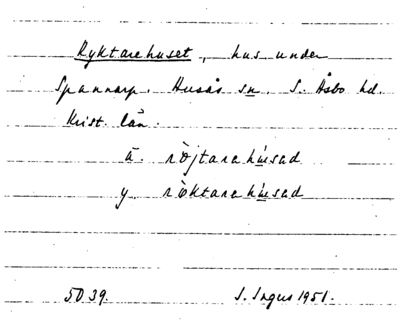 Ryktarehuset, hus under
Spannarp, Husås sn, S. Åsbo hd.
Krist. län.
ä. rö̀jtarahú̱sad
y. rö̀ktarahú̱sad
5039. S. Ingers 1951.